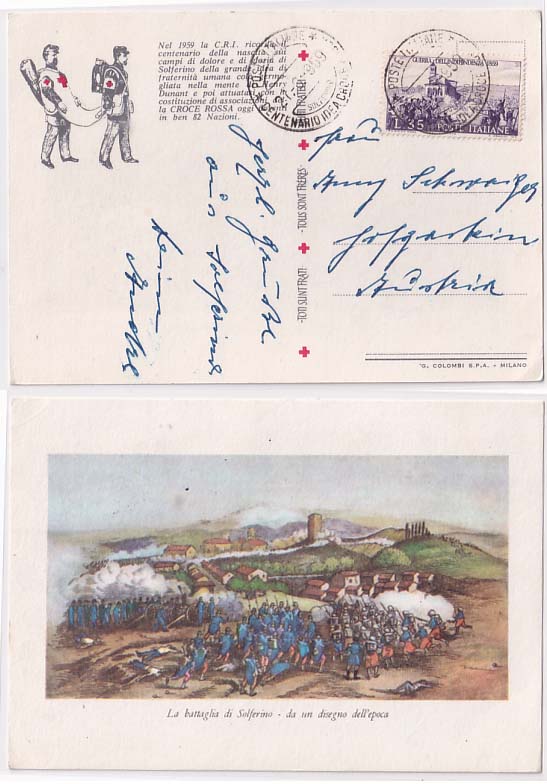 Nel 1959 la C.R.I. ricorda il
centenario della nascita sui
campi di dolore e di gloria di
Solferino della grande idea di
fraternità umana
gliata nella mente Henry
Dunant e poi attuatasi con la
costituzione di associazioni
la CROCE ROSSA oggi
in ben 82 Nazioni.
POSTE ITALIANE
1959
CENTENARIO IDEA CRI
SOLFERINO
POSTE ITALIANE
GUERRA D'INDIPENDENZA 1859
L. 35 POSTE ITALIANE
-TOTI SUNT FRATI- -TOUS SONT FRERES-
Herzl. Grüße
aus Solferino
Andre
Frau
Amy
Hofgastein
Austria
G. COLOMBI S.P.A. - MILANO
La battaglia di Solferino - da un disegno dell'epoca